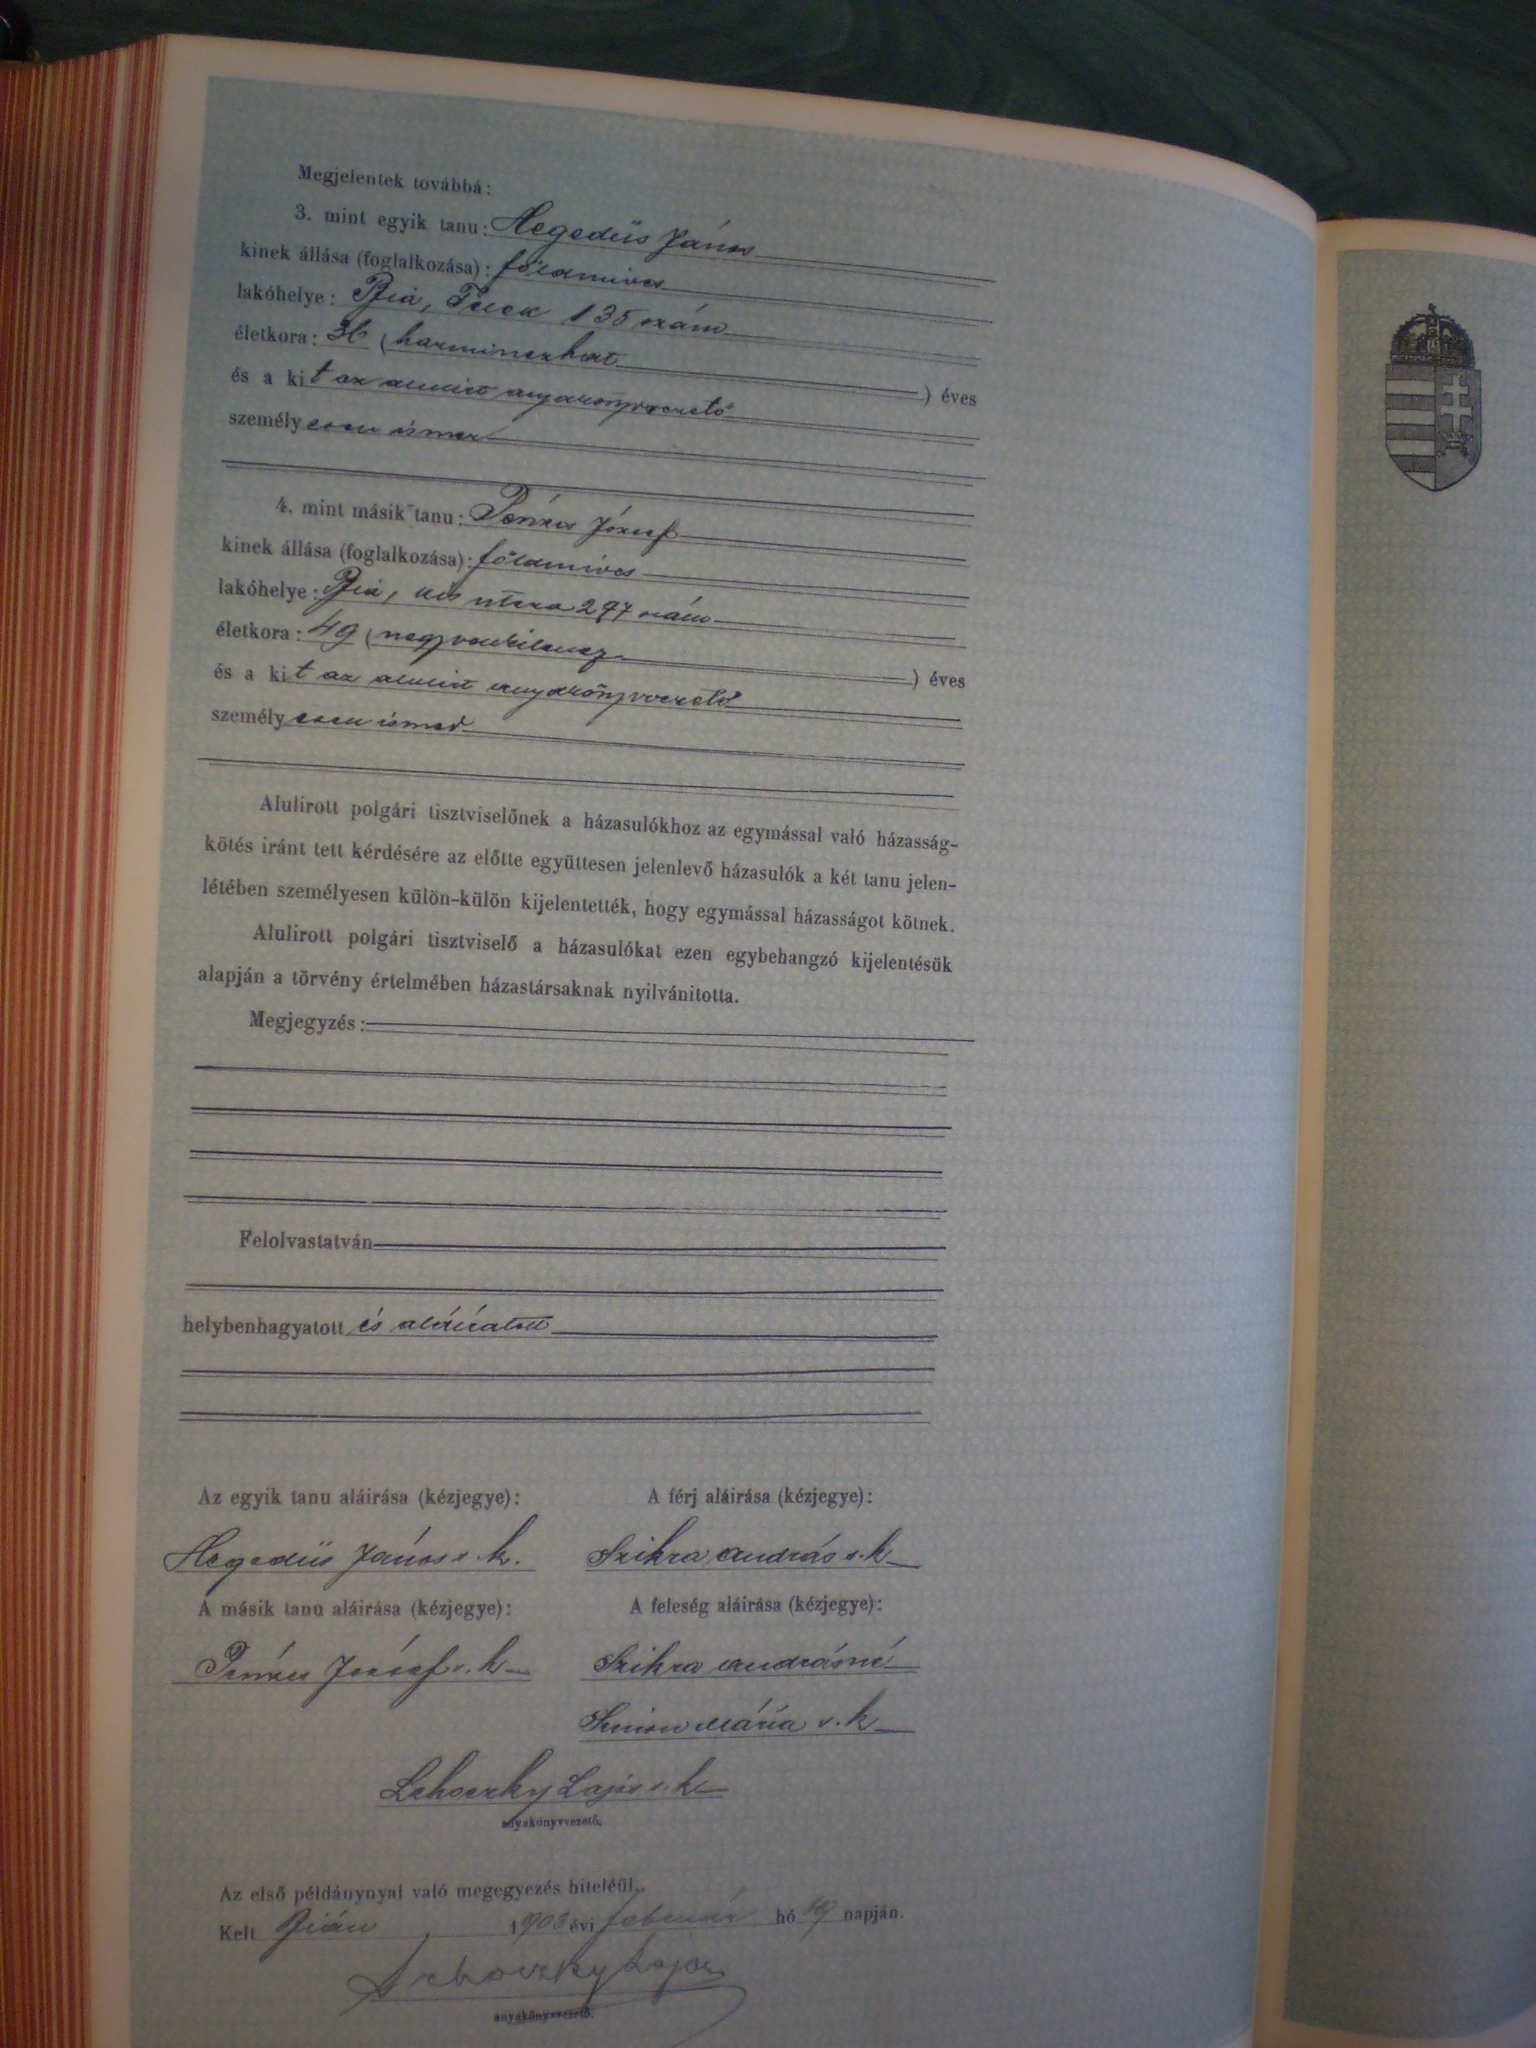 Megjelentek továbbá:
3. mint egyik tanu: Hegedüs János
kinek állása (foglalkozása): földmives
lakóhelye: Bia, 135 szám
életkora: 36 (harminczhat) éves
és a kit az alulirt anyakönyvvezető
személyesen ismer
4. mint másik tanu: József
kinek állása (foglalkozása): földmives
lakóhelye: Bia, kis utcza 297 szám
életkora: 49 (negyvenkilencz) éves
és a kit az alulirt anyakönyvvezető
személyesen ismer
Alulirott polgári tisztviselőnek a házasulókhoz az egymással való házasság-
kötés iránt tett kérdésére az előtte együttesen jelenlevő házasulók a két tanu jelen-
létében személyesen külön-külön kijelentették, hogy egymással házasságot kötnek.
Alulirott polgári tisztviselő a házasulókat ezen egybehangzó kijelentésük
alapján a törvény értelmében házastársaknak nyilvánitotta.
Megjegyzés:
Felolvastatván
helybenhagyatott és aláíratott
Az egyik tanu aláirása (kézjegye): A férj aláirása (kézjegye):
Hegedüs János s. k. Szikra András s. k.
A másik tanu aláirása (kézjegye): A feleség aláirása (kézjegye):
József s. k. Szikra Andrásné
Simon Mária s. k.
Lehoczky Lajos s. k.
anyakönyvvezető.
Az első példánynyal való megegyezés hiteléül.
Kelt Bián 1903 évi február hó 19 napján.
Lehoczky Lajos
anyakönyvvezető.